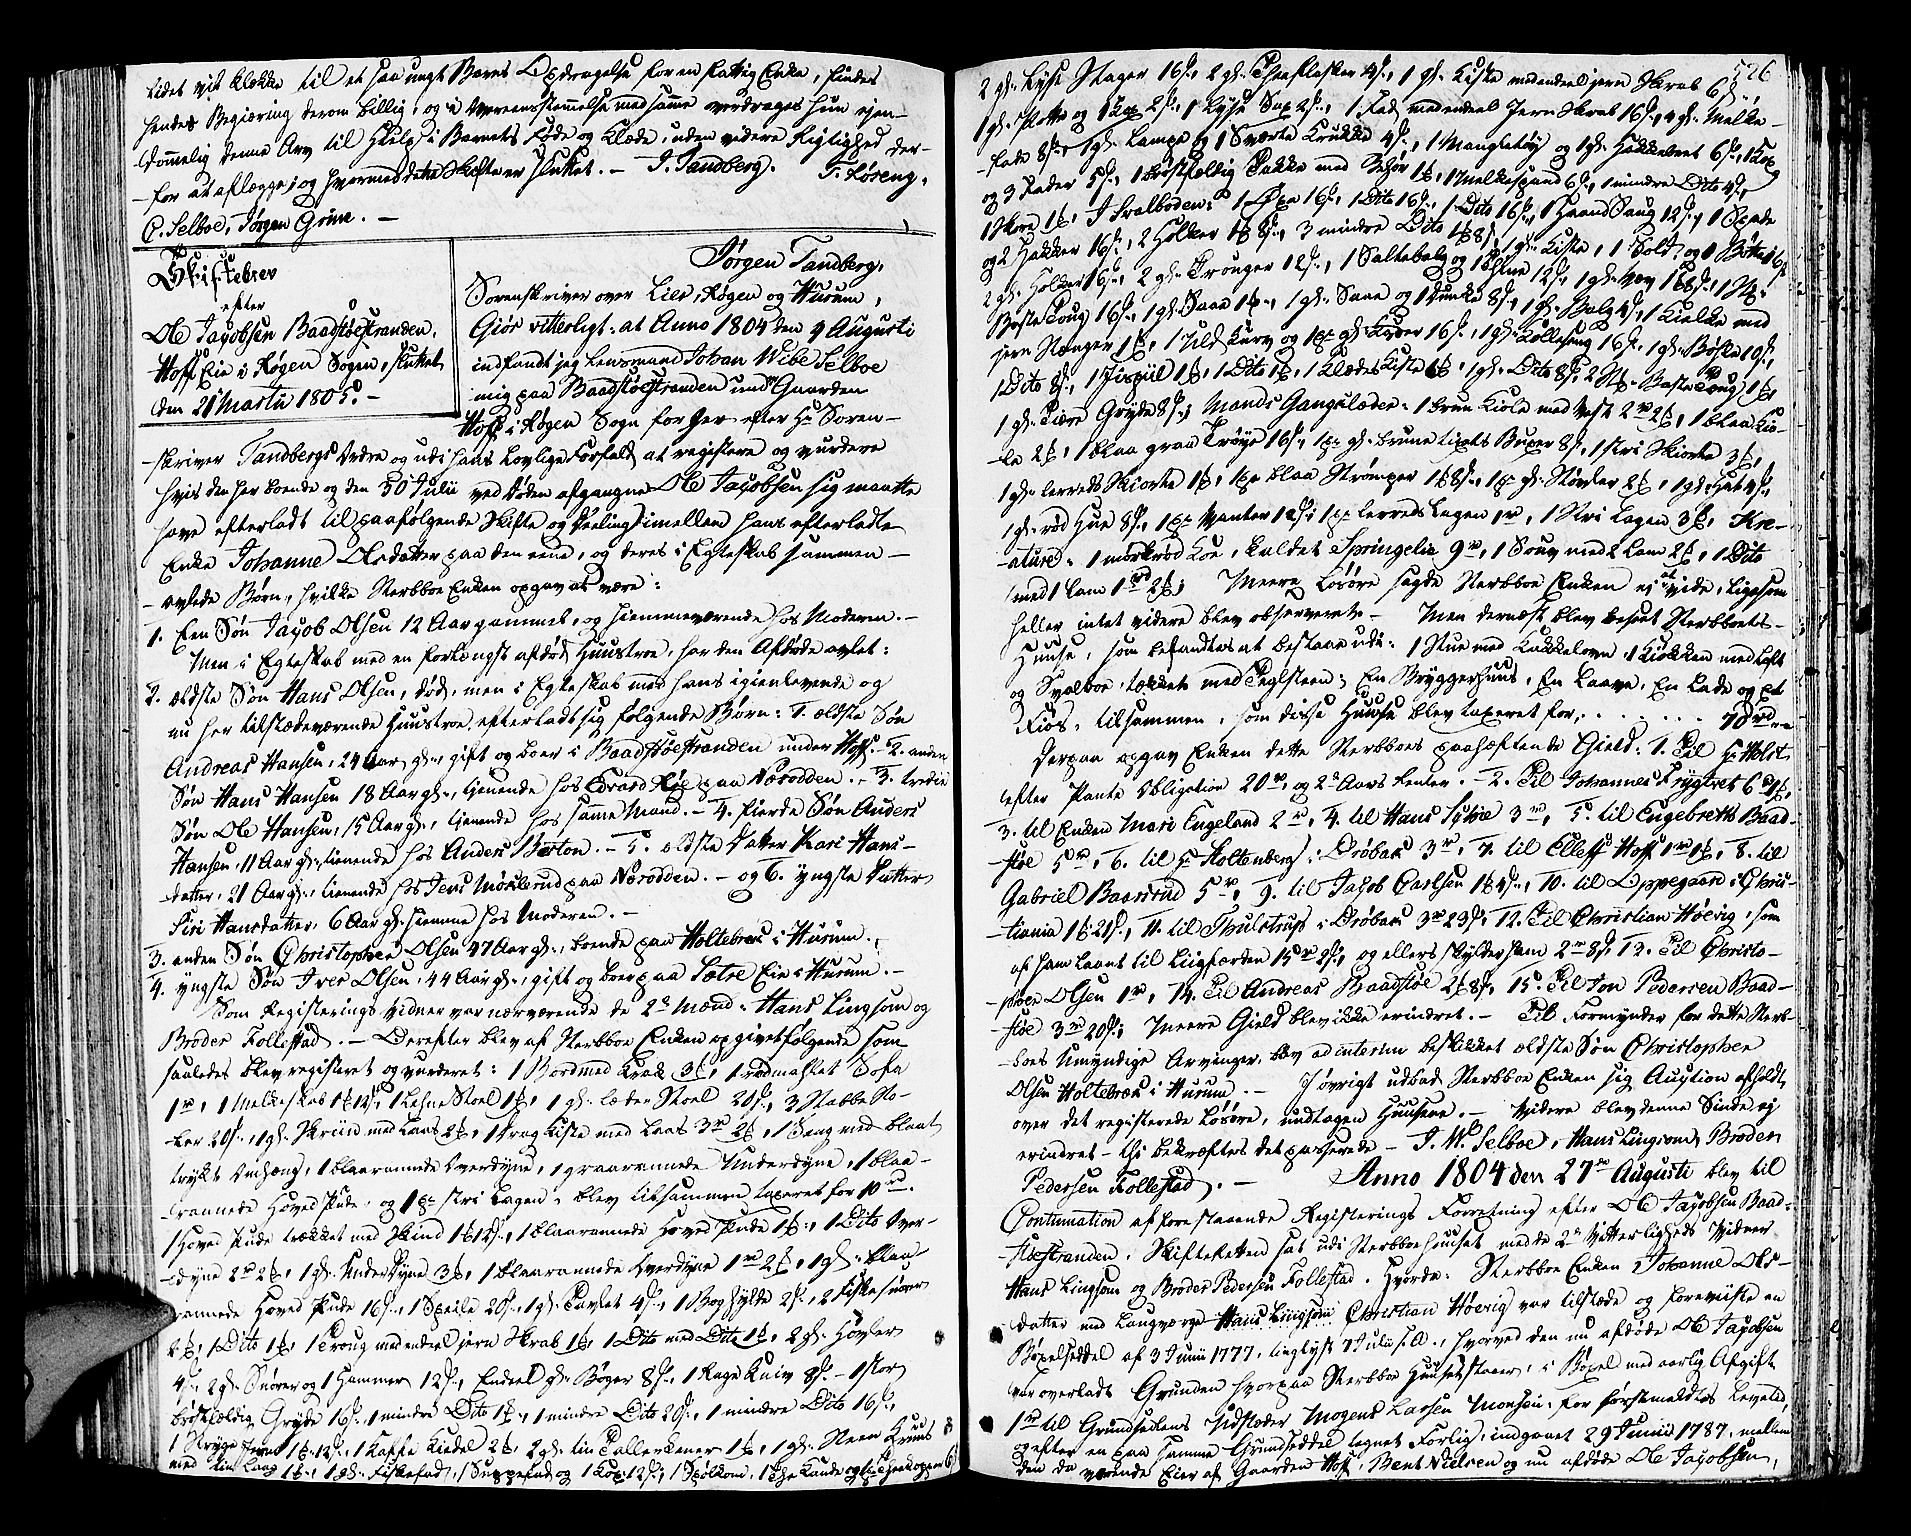 tidet vist klække til et saa ungt Barns Opdragelse for en fattig Enke, findes
hendes Begiæring derom billig, og i Overeensstemmelse med samme overdrages hun ejen-
-dommelig denne Arv til Hielp i Barnets Føde og Klæde, uden videre Rigtighed der-
-for at aflægge, og hvormed dette Skifte er sluttet. — J. Tandberg. F. Løreng,
C. Selboe, Jørgen Grime. —
Skiftebrev
efter
Ole Jacobsen Baadstøestranden,
Hoff Eie i Røgen Sogn, sluttet
den 21 Martii 1805. —
Jørgen Tandberg,
Sorenskriver over Lier, Røgen og Hurum,
Giør vitterligt: at Anno 1804 den 9 Augusti
indfandt jeg Lensmand Johan Wibe Selboe
mig paa Baadstøestranden under Gaarden
Hoff i Røgen Sogn for her efter Hr Soren-
-skriver Tandbergs Ordre og udi hans lovlige Forfald at registere og vurdere
hvis den her boende og den 30 Julii ved Døden afgangne Ole Jacobsen sig maatte
have efterladt til paafølgende Skifte og Deeling imellem hans efterladte
Enke Johanne Olsdatter paa den eene, og deres i Egteskab sammen-
-avlede Børn, hvilke Sterbboe Enken opgav at være:
1. Een Søn Jacob Olsen 12 Aar gammel, og hiemmeværende hos Moderen. —
Men i Egteskab med en forlængst afdød Hustroe, har den Afdøde avlet:
2. ældste Søn Hans Olsen, død, men i Egteskab med hans igienlevende og
nu her tilstædeværende Hustroe, efterladt sig følgende Børn: 1. ældste Søn
Andreas Hansen, 24 Aar gl., gift og boer i Baadstøestranden under Hoff. — 2. anden
Søn Hans Hansen 18 Aar gl., tienende hos Edvard Eje paa Nærodden. — 3. tredie
Søn Ole Hansen, 15 Aar gl., tienende hos samme Mand. — 4. fierde Søn Anders
Hansen, 11 Aar gl., tienende hos Anders Bøxton. — 5. ældste Datter Kari Hans-
datter, 21 Aar gl., tienende hos Jens Mørkerud paa Nærodden. — og 6. yngste Datter
Siri Hansdatter, 6 Aar gl. hiemme hos Moderen. —
3. anden Søn Christopher Olsen 47 Aar gl., boende paa Holtebrek i Hurum. —
4. yngste Søn Iver Olsen, 44 Aar gl., gift og boer paa Sætre Eie i Hurum. —
Som Registerings Vidner var nærværende de 2de Mænd: Hans Lingsom og
Broder Follestad. — Derefter blev af Sterbboe Enken opgivet følgende som
saaledes blev registeret og vurderet: 1 Bord med Krak 3 ort, 1 rødmahlet Sofa
1 rd, 1 Melkeskab 1 ort 12 s, 1 Lehne Stoel 1 ort, 1 gl. læder Stoel 20 s, 3 Stabbe Sto-
ler 20 s, 1 gl. Skriin med Laas 2 ort, 1 Drag Kiste med Laas 3 rd 2 ort, 1 Seng med blaat
trykt Omhæng, 1 blaarannede Overdyne, 1 graarannede Underdyne, 1 blaa-
-rannede Hoved Pude, og 1 pr. stri Lagen, blev tilsammen taxeret for 10 rd.
1 Hoved Pude trækket med Skind 1 ort 12 s, 1 blaarannede Hoved Pude 1 ort, 1 Dito Over-
-dyne 2 rd 2 ort, 1 gl. Under Dyne 3 ort, 1 blaarannede Overdyne 1 rd 2 ort, 1 gl. blaa-
rannede Hoved Pude 16 s, 1 Speile 20 s, 1 gl. Tavlet 4 s, 1 Boghylde 2 s, 2 Fiskesnører
2 ort, 1 Dito 1 ort, 1 Troug med endeel jern Skrab 1 ort, 1 Dito med Dito 1 ort, 2 gl. Høvler
4 s, 2 gl. Snører og 1 Hammer 12 s, Endeel gl. Bøger 8 s, 1 Rage Kniv 8 s — 1 stor
brøstfældig Gryde 16 s, 1 mindre Dito 1 ort, 1 mindre Dito 20 s, 1 mindre Dito 16 s,
1 Stryge Jern 1 ort 12 s, 1 Kaffe Kiedel 2 ort, 2 gl. tin Tallerkener 1 ort, 1 gl. Steen Kruus
med tin Laag 1 ort, 1 gl. Fiskefad, 1 Suppefad og 1 Kop 12 s, 1 Spølkom, 1 The Kande og
526
2 gl. Lyse Stager 16 s, 2 gl. Thee flasker 4 s, 1 gl. Kiste med endeel jern Skrab 6 s
1 gl. Flotte og 1 Kop 2 s, 1 Lyse Sax 2 s, 1 Fad med endeel Jern Skrab 16 s, 4 gl. Melke-
-fade 8 s, 1 gl. Lampe og 1 Sværte Krukke 4 s, 1 Mangletøy og 1 gl. Hakkebret 6 s, 1 Kop
og 3 Fader 5 s, 1 brøstfældig Bakke med Behør 1 ort, 1 Melkespand 6 s, 1 mindre Dito 4 s,
1 Skore 1 ort, I Svalboden: 1 Øxe 16 s, 1 Dito 16 s, 1 Dito 16 s, 1 Haand Saug 12 s, 1 Spade
og 2 Hakker 16 s, 2 Holker 1 ort 8 s, 3 mindre Dito 1 ort 8 s, 1 gl. Kiste, 1 Sold og 1 Bøtte 16 s
2 gl. Holker 16 s, 2 gl. Trouger 12 s, 1 Saltebalg og 1 Ehtne 12 s, 1 gl. Vev 1 ort 8 s, 1
Baste Toug 16 s, 1 gl. Saae 1 ort, 1 gl. Saae og 1 Dunke 8 s, 1 gl. Balg 4 s, 1 Kielke med
jern Stænger 1 ort, 1 Uld Kurv og 1 pr gl. Karder 16 s, 1 gl. Rolleseng 16 s, 1 gl. Børste 10 s,
1 Dito 8 s, 1 Iispiil 1 ort, 1 Dito 1 ort, 1 Klædes Kiste 1 ort, 1 gl. Dito 8 s, Baste Toug 1 ort
1 gl. Tiære Gryde 8 s; Mands Gangklæder: 1 brun Kiole med Vest 2 rd 2 ort, 1 blaa Kio-
-le 2 ort, 1 blaa graa Trøye 16 s, 1 pr gl. brune Buxer 8 s, 1 stri Skiorte 3 ort,
1 gl. lerreds Skiorte 1 ort, 1 pr blaa Strømper 1 ort 8 s, 1 pr gl. Støvler 2 ort, 1 gl. Hat 4 s,
1 gl. rød Hue 8 s, 1 pr Vanter 12 s; 1 pr lerreds Lagen 1 rd, 1 Stri Lagen 3 ort, Kre-
-ature: 1 mørkrød Koe, kaldet Springelie 9 rd, 1 Souv med 2 Lam 2 ort, 1 Dito
med 1 Lam 1 rd 2 ort; Meere Løsøre sagde Sterbboe Enken ej at vide, ligesom
heller intet videre blev observeret — Men dernæst blev beseet Sterbboets-
Huuse, som befandtes at bestaae udi: 1 Stue med Kakkelovn, 1 Kiøkken med Loft
og Svalboe, tækket med Teglsteen; En Bryggerhuus, En Laave, En Lade og et
Fiøs, tilsammen, som disse Huuse blev taxeret for, . . . . . . . 70 rd —
Derpaa opgav Enken dette Sterbboes paahæftende Gield: 1. Til Hr Holst
efter Pante Obligation 20 rd, og 2 Aars Renter. — 2. Til Johannes Trygtret 6 rd 1 ort,
3. til Enken Mari Engeland 2 rd, 4. til Hans Sylvie 3 rd, 5. til Engebrett Baad-
støe 5 rd, 6. til Hr Stoltenberg i Drøbak 3 rd, 7. til Elleff Hoff 1 rd 1 ort, 8. til
Gabriel Baarsrud 5 rd, 9. til Jacob Carlsen 1 ort 4 s, 10. til Oppegaard i Chri-
tiania 1 ort 21 s, 11. til Thulstrup i Drøbak 3 rd 23 s, 12. Til Christian Høevig, som
af ham laant til Liigfærden 15 rd 2 s, og ellers skyldes ham 2 rd 8 s, 13. Til Christo-
-pher Olsen 1 rd, 14. Til Andreas Baadstøe 2 ort 8 s, 15. Til Jon Pedersen Baad-
-støe 3 rd 20 s; Meere Gield blev ikke erindret. — Til Formynder for dette Sterb-
-boes Umyndige Arvinger, blev ad interim beskikket ældste Søn Christopher
Olsen Holtebrek i Hurum. — Iøvrigt udbad Sterbboe Enken sig Auction afholdt
over det registerede Løsøre, undtagen Huusene. — Videre blev denne Sinde ej
erindret — thi bekræftes det passerede — J. W. Selboe, Hans Lingsom, Broder
Pedersen Follestad. — Anno 1804 den 27de Augusti blev til
Continuation af forestaaende Registerings Forretning efter Ole Jacobsen Baad-
-støestranden, Skifteretten sat udi Sterbboehuuset med de 2de Vitterligheds Vidner
Hans Lingsom og Broder Pedersen Follestad. Hvorda: Sterbboe Enken Johanne Ols-
datter med Laugværge Christian Høevig var tilstæde og foreviiste en
Bøxelseddel af 3 Junii 1777, tinglyst 7 Julii s. A., hvorved den nu afdøde Ole Jacobsen
var overladt Grunden hvorpaa Sterbboe Huuset staaer, i Bøxel med aarlig Afgift
1 rd til Grundseddelens Udstæder Mogens Larsen Monsen: for førstmeldtes Levetid,
og efter en paa samme Grundseddel tegnet Forlig, indgaaet 29 Junii 1787, mellem
den da værende Eier af Gaarden Hoff, Bent Nielsen og nu afdøde Ole Jacobsen,